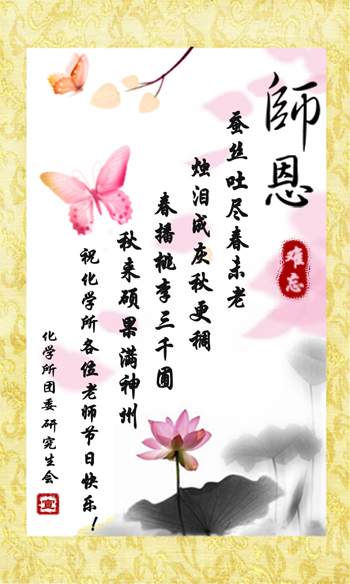 師恩
难忘
蚕丝吐尽春未老
烛泪成灰秋更稠
春播桃李三千圆
秋来硕果满神州
祝化学所各位老师节日快乐！
化学所团委研究生会